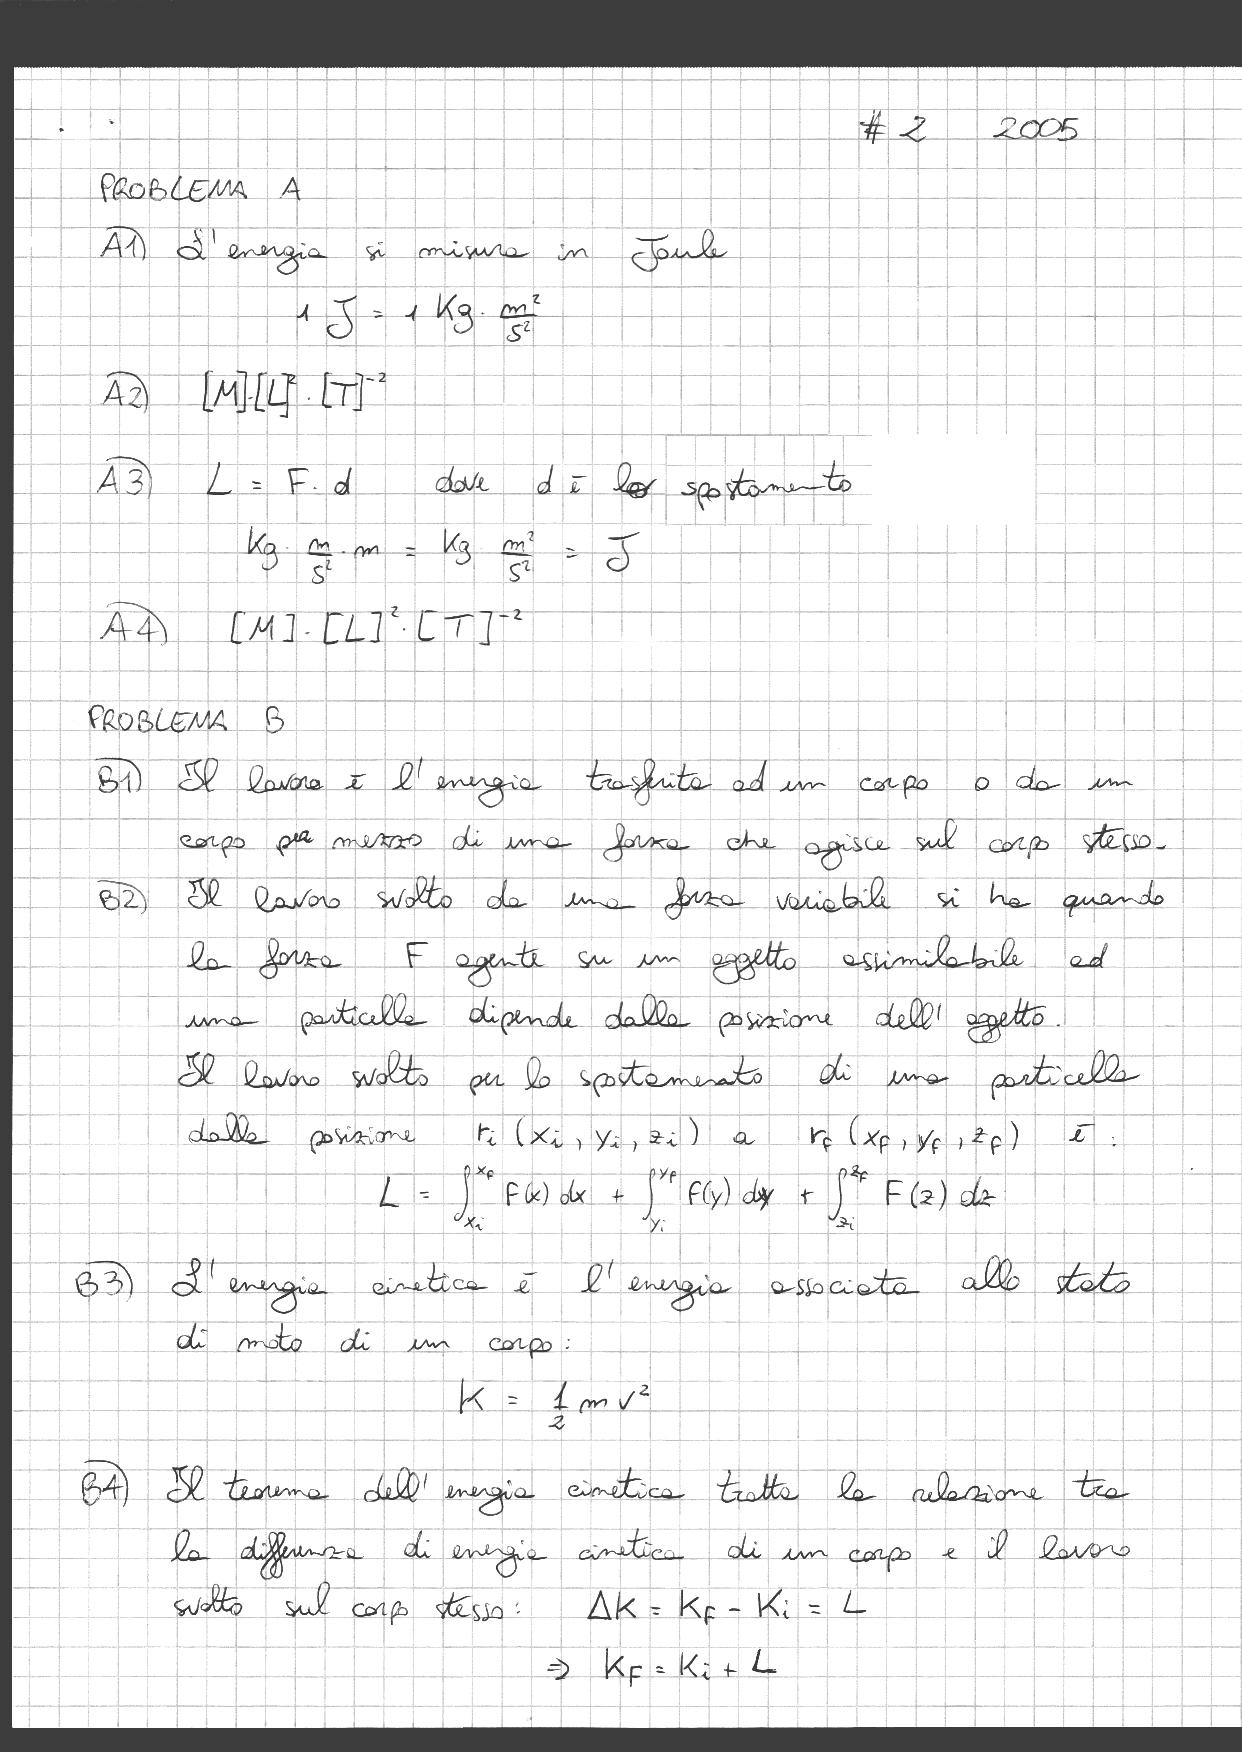 # 2 2005
PROBLEMA A
A1) L'energia si misura in Joule
1 J = 1 Kg · m²/s²
A2) [M]·[L]² · [T]⁻²
A3) L = F · d dove d è lo spostamento
Kg · m/s² · m = Kg · m²/s² = J
A4) [M] · [L]² · [T]⁻²
PROBLEMA B
B1) Il lavoro è l'energia trasferita ad un corpo o da un
corpo per mezzo di una forza che agisce sul corpo stesso.
B2) Il lavoro svolto da una forza variabile si ha quando
la forza F agente su un oggetto assimilabile ad
una particella dipende dalla posizione dell'oggetto.
Il lavoro svolto per lo spostamento di una particella
dalla posizione rᵢ (xᵢ, yᵢ, zᵢ) a r_f (x_f, y_f, z_f) è :
L = ∫_{xᵢ}^{x_f} F(x) dx + ∫_{yᵢ}^{y_f} F(y) dy + ∫_{zᵢ}^{z_f} F(z) dz
B3) L'energia cinetica è l'energia associata allo stato
di moto di un corpo :
K = 1/2 m v²
B4) Il teorema dell'energia cinetica tratta la relazione tra
la differenza di energia cinetica di un corpo e il lavoro
svolto sul corpo stesso : ΔK = K_F - Kᵢ = L
⇒ K_F = Kᵢ + L